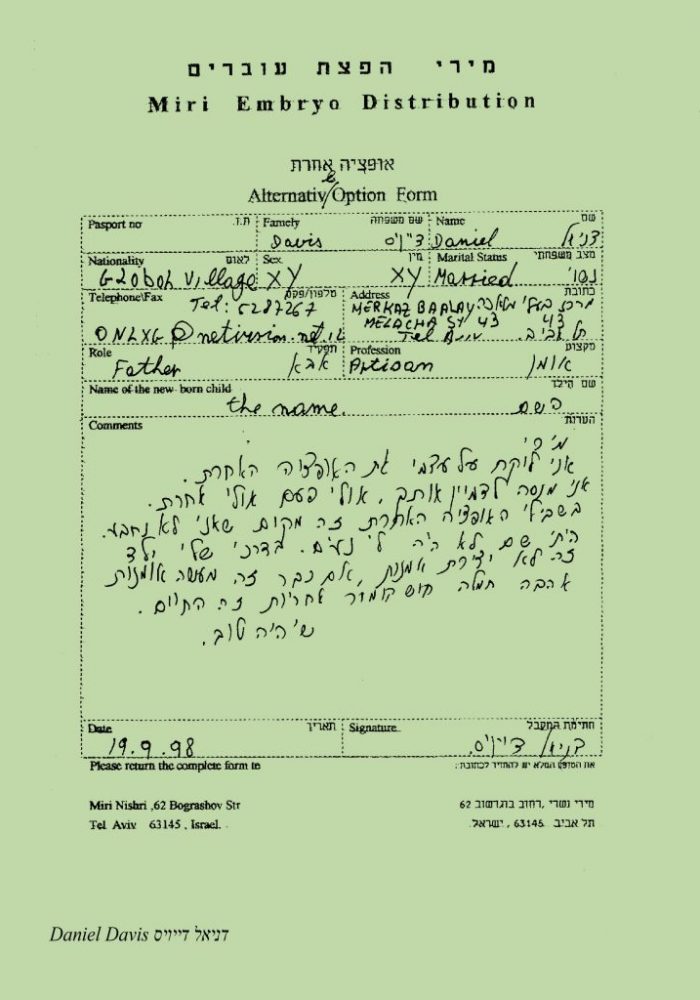 מירי הפצת עוברים
Miri Embryo Distribution
אופציה אחרת
Alternative Option Form
Pasport no ת.ז. Famely שם משפחה Name שם
Davis דייויס Daniel דניאל
Nationality לאום Sex מין Marital Status מצב משפחתי
Global Village XY XY Married נשוי
Telephone\Fax טלפון/פקס Address כתובת
Tel: 5287267 MERKAZ BAALAY מרכז בעלי מלאכה
MELACHA ST 43 43
ONLXG@netvision.net.il Tel Aviv תל אביב.
Role תפקיד Profession מקצוע
Father אבא Artisan אומן
Name of the new-born child שם הילד
the name. השם
Comments הערות
מירי
אני לוקח על עצמי את האופציה האחרת.
אני מנסה לדמיין אותך, אולי פעם אולי אחרת.
בשבילי האופציה האחרת זה מקום שאני לא נחבא.
הייתי שם לא היה לי נעים. בדרכי שלי ילד
זה לא יצירת אמנות, אם כבר זה מעשה אומנות
אהבה חמלה חוש הומור אחריות זה החיים.
שיהיה טוב.
Date תאריך Signature חתימת המקבל
19.9.98 דניאל דייויס.
Please return the complete form to את הטופס המלא יש להחזיר לכתובת:
Miri Nishri ,62 Bograshov Str מירי נשרי ,רחוב בוגרשוב 62
Tel Aviv 63145 , Israel. תל אביב 63145 , ישראל.
Daniel Davis דניאל דייויס